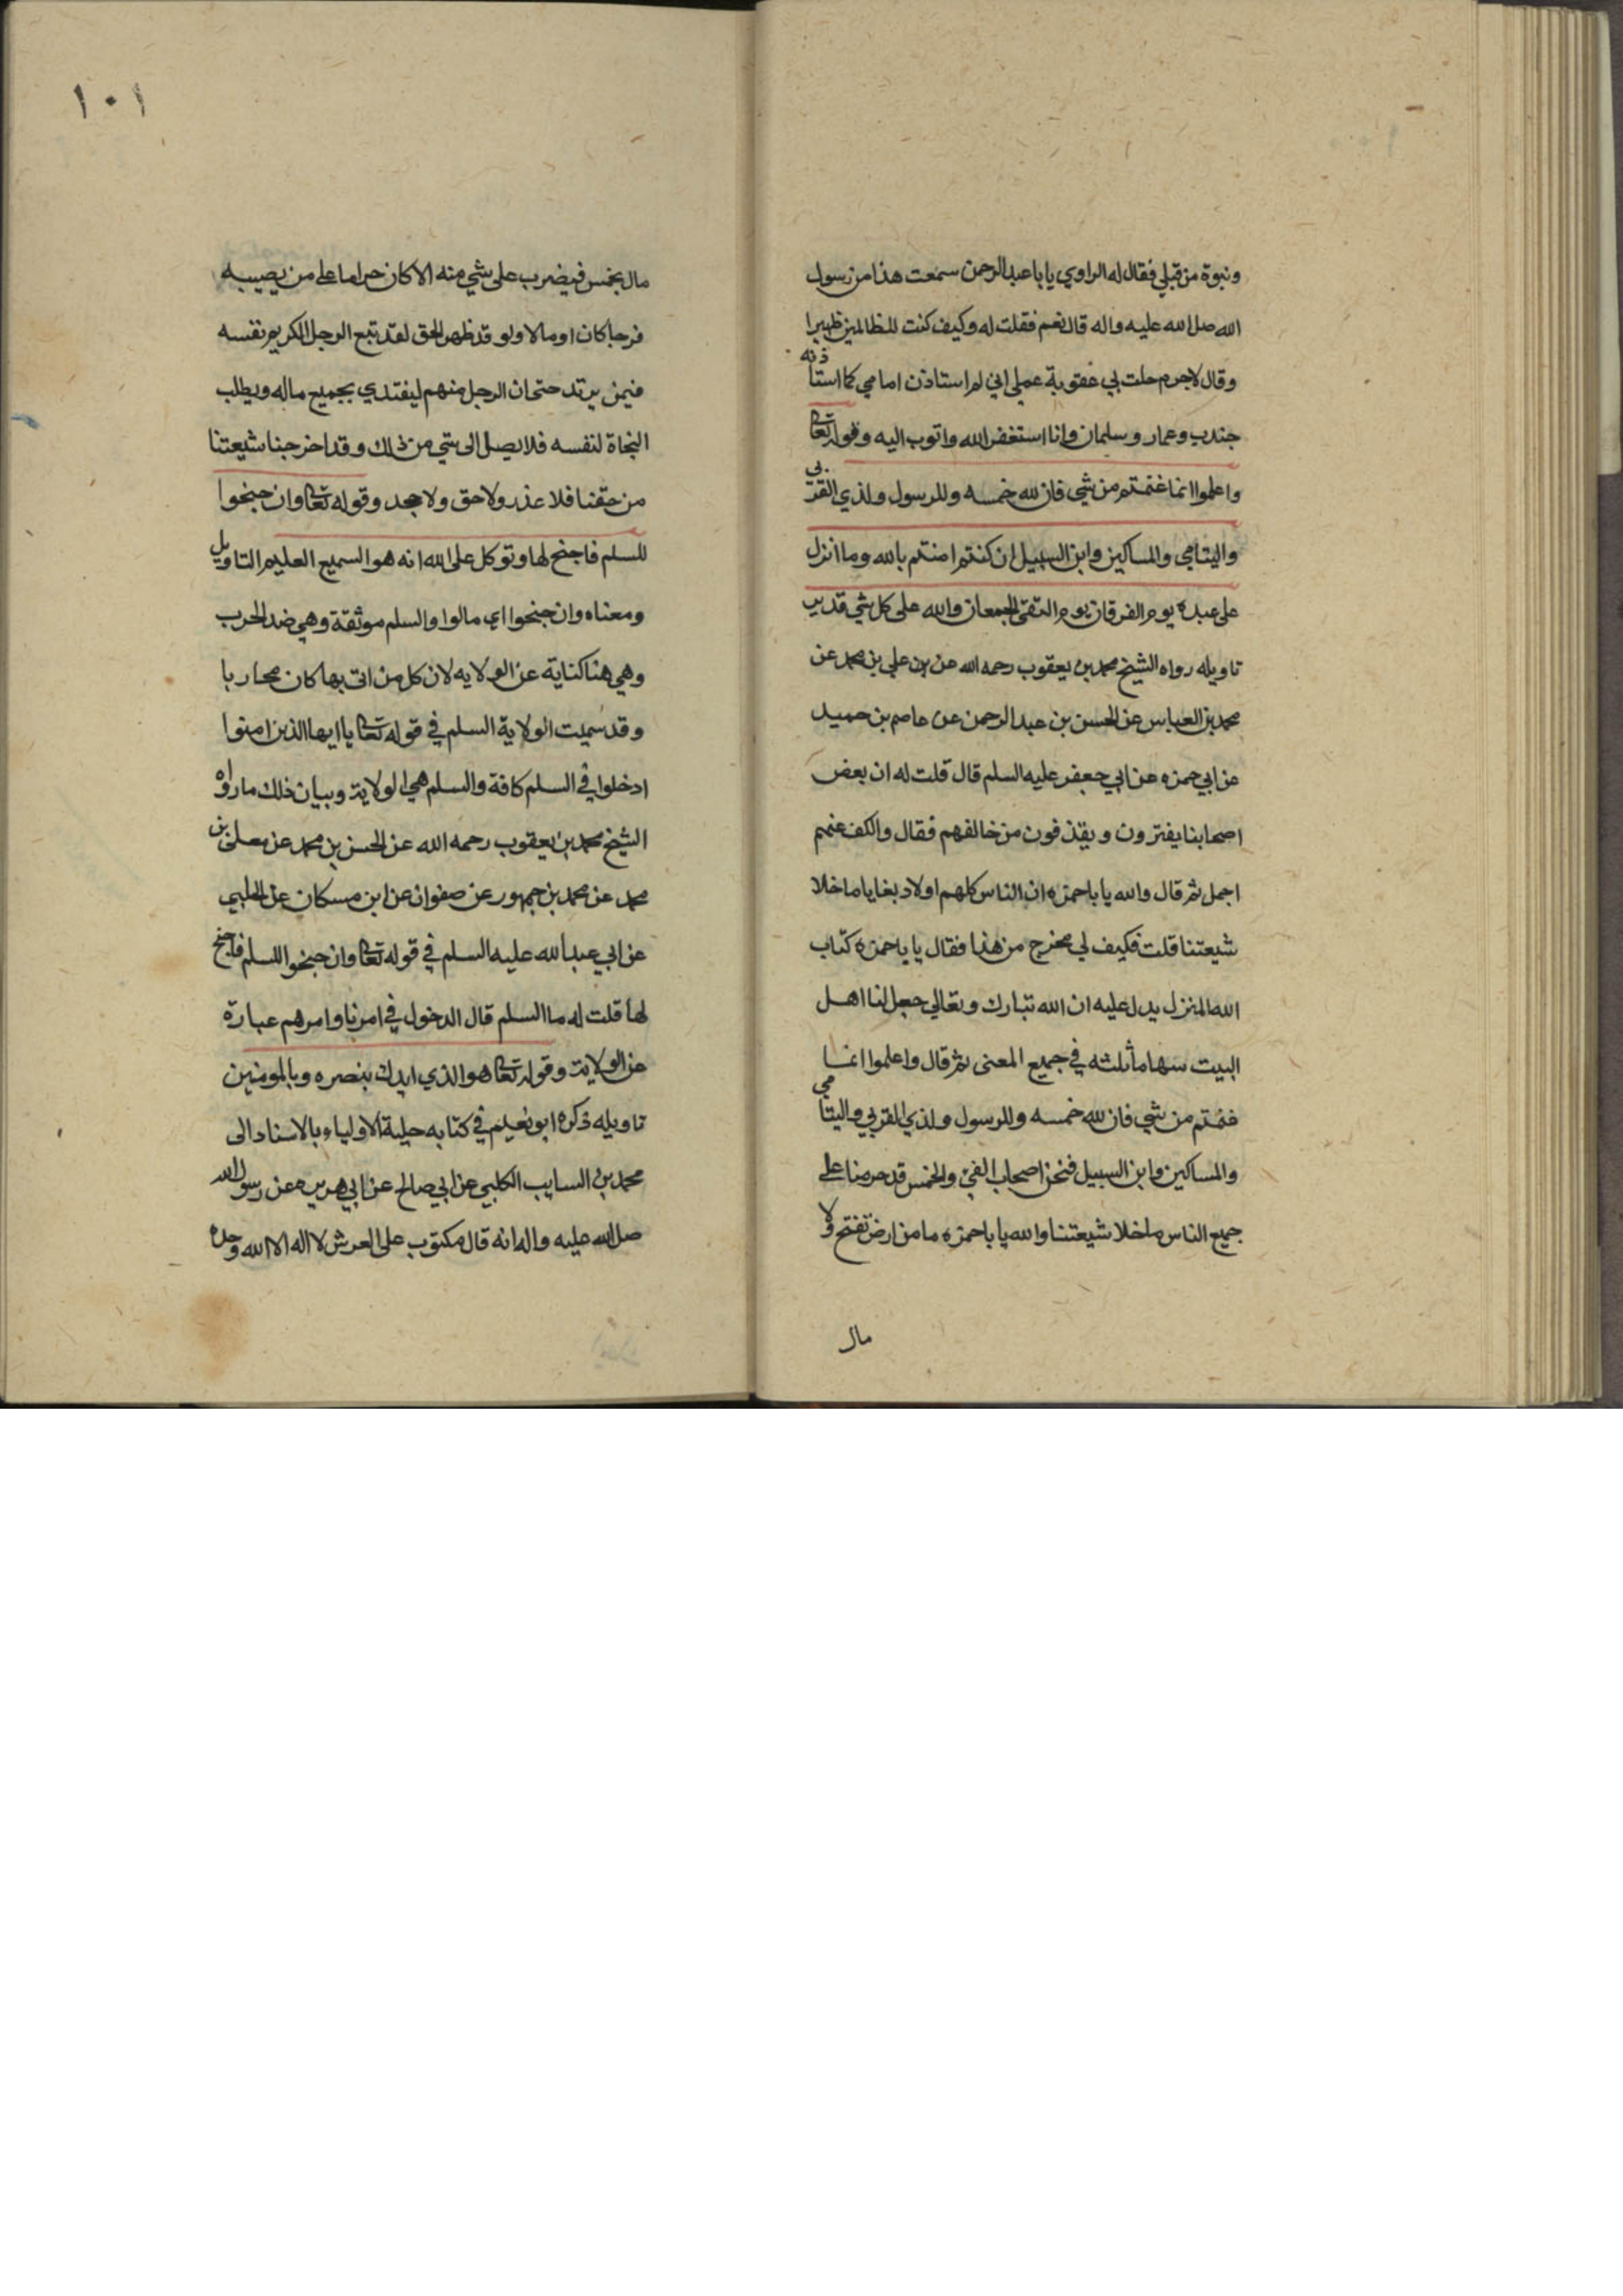 ونبوة من قبلي فقال له الراوي يا با عبد الرحمن سمعت هذا من رسول
الله صل الله عليه واله قال نعم فقلت له وكيف كنت للظالمين ظهيرا
وقال لاجرم حلت بي عقوبة عملي اني لم استاذن امامي كما استاذنه
جندب وعمار وسلمان وانا استغفر الله واتوب اليه وقوله تعا
واعلموا انما غنمتم من شي فان لله خمسه وللرسول ولذي القربى
واليتامي والمساكين وابن السبيل ان كنتم امنتم بالله وما انزل
على عبده يوم الفرقان يوم التقى الجمعان والله على كل شي قدير
تاويله رواه الشيخ محمد بن يعقوب رحمه الله عن علي بن محمد عن
محمد بن العباس عن الحسن بن عبد الرحمن عن عاصم بن حميد
عن ابي حمزه عن ابي جعفر عليه السلم قال قلت له ان بعض
اصحابنا يفترون ويقذفون من خالفهم فقال والكف عنهم
اجمل ثم قال والله يا با حمزه ان الناس كلهم اولاد بغايا ما خلا
شيعتنا قلت فكيف لي مخرج من هذا فقال يا با حمزه كتاب
الله المنزل يدل عليه ان الله تبارك وتعالي جعل لنا اهل
البيت سهاما ثلثه في جميع المعنى ثم قال واعلموا انما
غنمتم من شي فان لله خمسه وللرسول ولذي القربي واليتامي
والمساكين وابن السبيل فنحن اصحاب الفئ والخمس قد حرمنا على
جميع الناس ما خلا شيعتنا والله يا با حمزه ما من ارض تفتح ولا
مال
١٠١
مال يخمس فيضرب على شي منه الا كان حراما على من يصيبه
فرجا كان او مالا ولو قد ظهر الحق لقد تبع الرجل الكريم نفسه
فيمن يرتد حتى ان الرجل منهم ليفتدي بجميع ماله ويطلب
النجاة لنفسه فلا يصل الى شي من ذلك وقد اخرجنا شيعتنا
من حقنا فلا عذر ولا حق ولا جحد وقوله تعا وان جنحوا
للسلم فاجنح لها وتوكل على الله انه هو السميع العليم التاويل
ومعناه وان جنحوا اي مالوا والسلم موثقة وهي ضد الحرب
وهي هنا كناية عن الولايه لان كل من اتى بها كان محاربا
وقد سميت الولاية السلم في قوله تعا يا ايها الذين امنوا
ادخلوا في السلم كافة والسلم هي الولاية وبيان ذلك ما رواه
الشيخ محمد بن يعقوب رحمه الله عن الحسن بن محمد عن معلى بن
محمد عن محمد بن جمهور عن صفوان عن ابن مسكان عن الحلبي
عن ابي عبد الله عليه السلم في قوله تعا وان جنحوا للسلم فاجنح
لها قلت له ما السلم قال الدخول في امرنا وامرهم عبارة
عن الولاية وقوله تعا هو الذي ايدك بنصره وبالمومنين
تاويله ذكره ابو نعيم في كتابه حلية الاولياء بالاسناد الى
محمد بن السايب الكلبي عن ابي صالح عن ابي هريره عن رسول الله
صل الله عليه واله انه قال مكتوب على العرش لا اله الا الله وحده